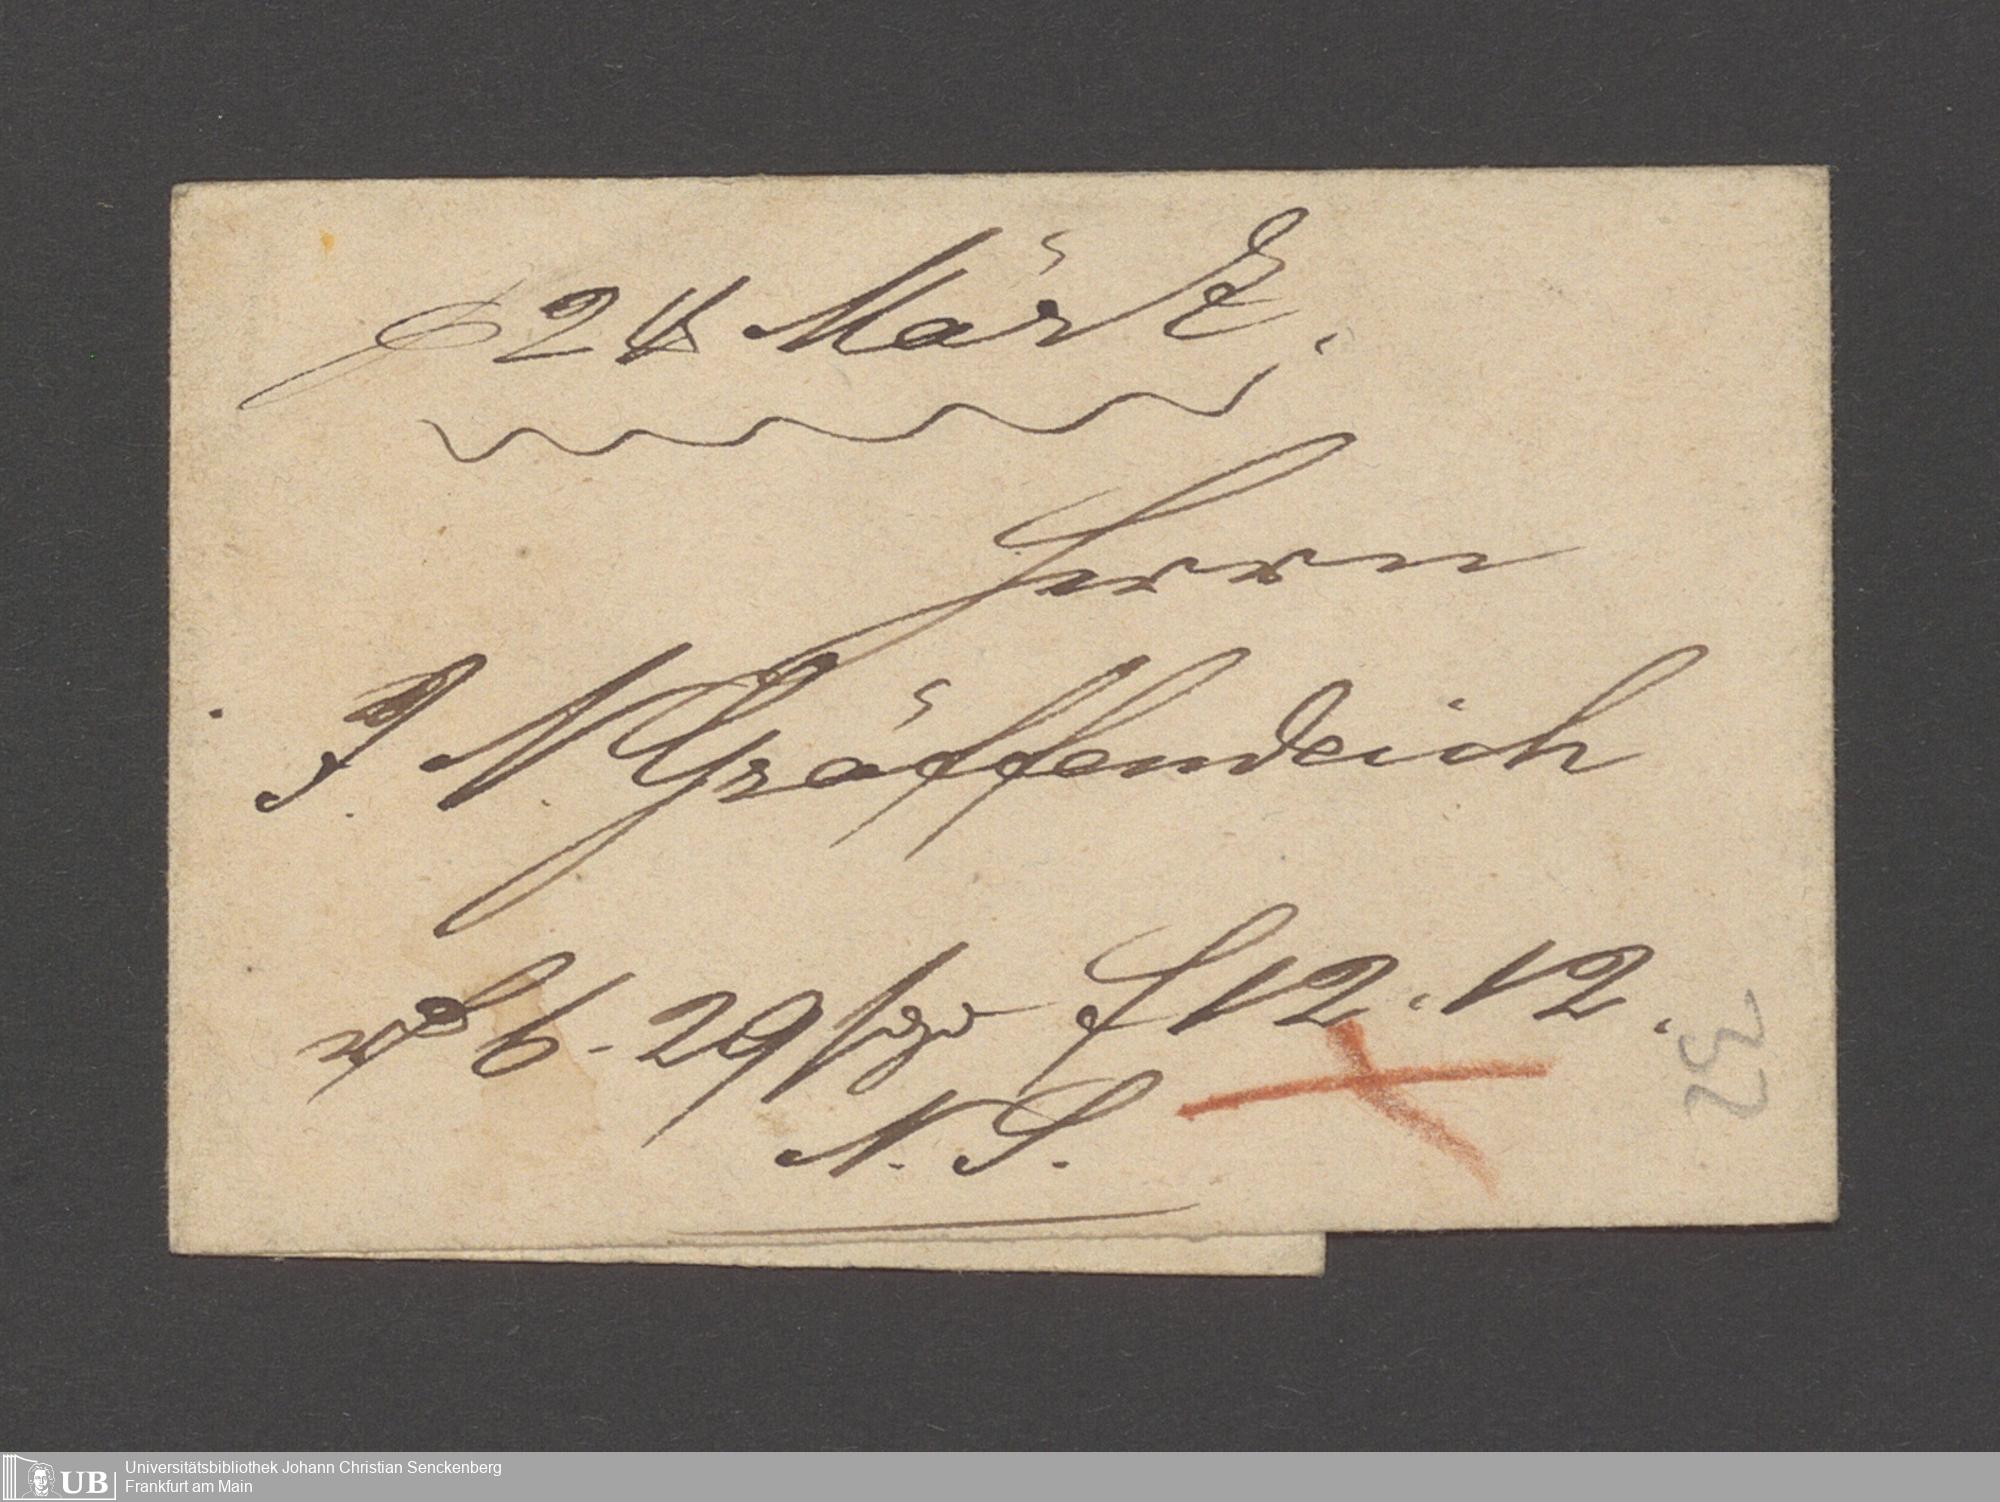 24 März.
Herrn
J. N. Gräffendeich
6.29 f 12.12.
N. S.
32
UB
Universitätsbibliothek Johann Christian Senckenberg
Frankfurt am Main